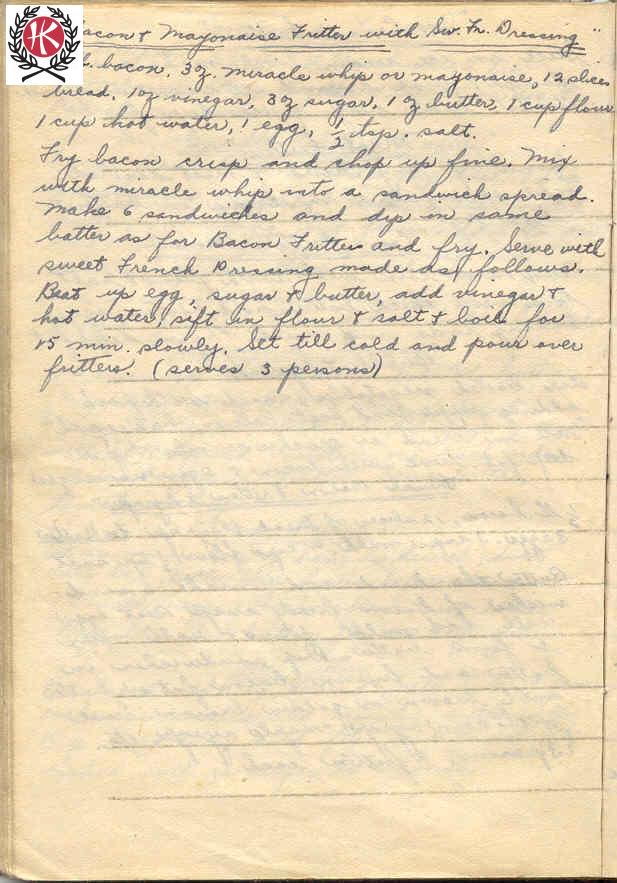 HK
Bacon & Mayonaise Fritter with Sw. Fr. Dressing"
bacon, 3 oz. miracle whip or mayonaise, 12 slices
bread. 1 oz vinegar, 3 oz sugar, 1 oz butter, 1 cup flour
1 cup hot water, 1 egg, 1/2 tsp. salt.
Fry bacon crisp and chop up fine. Mix
with miracle whip into a sandwich spread.
Make 6 sandwiches and dip in same
batter as for Bacon Fritter and fry. Serve with
sweet French Dressing made as follows.
Beat up egg, sugar & butter, add vinegar &
hot water, sift in flour & salt & boil for
15 min. slowly. Set till cold and pour over
fritters. (serves 3 persons)